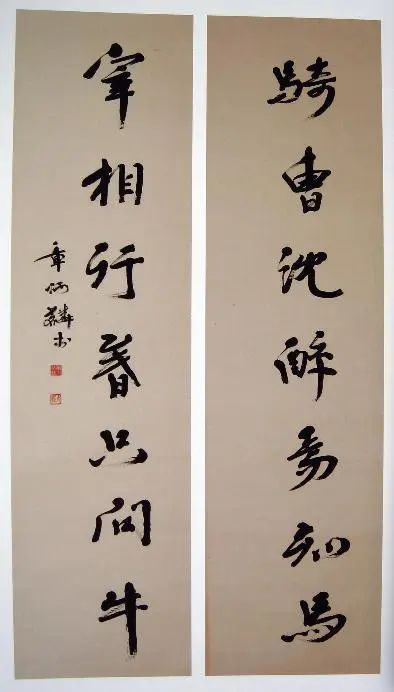 騎曹沈醉焉知馬
宰相行春只問牛
章炳麟书